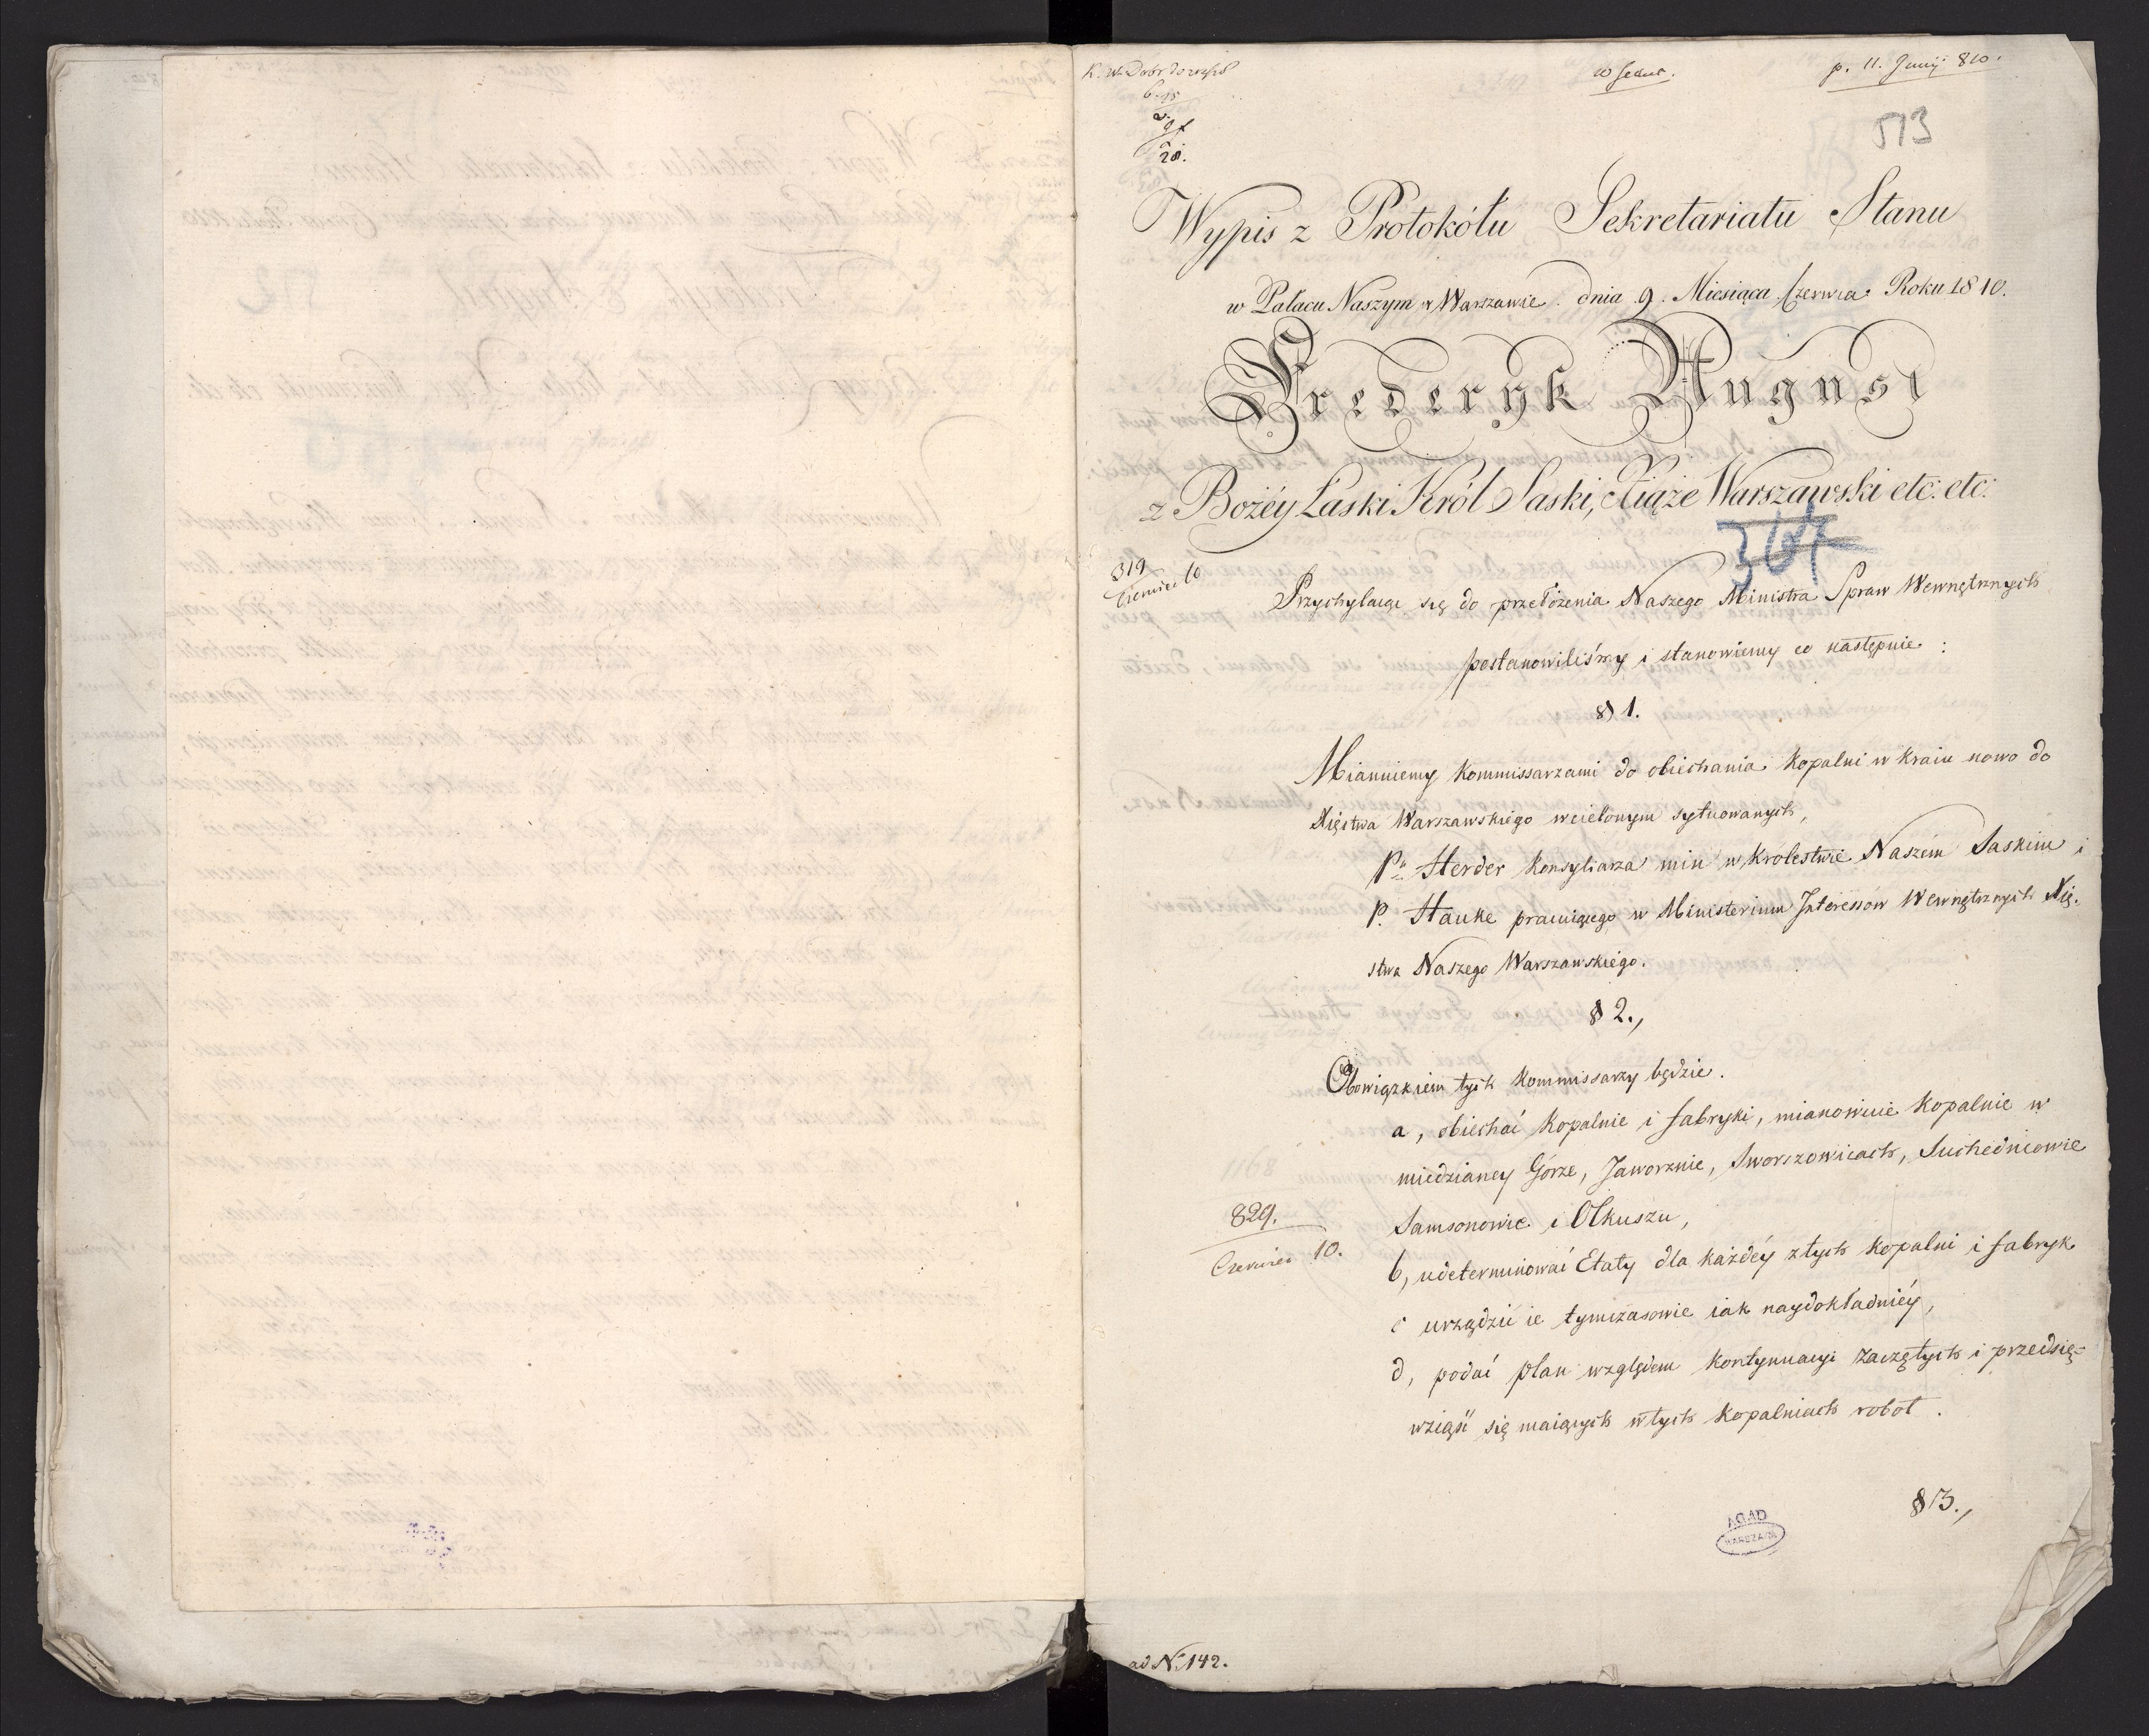 w Sekret.
p. 11. Junij 810.
513
Wypis z Protokółu Sekretariatu Stanu
w Pałacu Naszym w Warszawie. dnia 9. Miesiąca Czerwca Roku 1810.
Frederyk August
z Bożéy Łaski Król Saski, Xiąże Warszawski etc: etc:
319
Czerwiec 10
Przychylaiąc się do przełożenia Naszego Ministra Spraw Wewnętrznych
postanowiliśmy i stanowiemy co następnie :
§ 1.
Mianuiemy Kommissarzami do obiechania kopalni w kraiu nowo do
Xięstwa Warszawskiego wcielonym sytuowanych,
Pa Herder Konsyliarza min w Krolestwie Naszém Saskim i
P. Hauke pracuiącego w Ministerium Interessów Wewnętrznych Xię-
stwa Naszego Warszawskiego.
§ 2.,
Obowiązkiem tych Kommissarzy będzie.
a, obiechać Kopalnie i fabryki, mianowicie Kopalnie w
miedzianey Górze, Jaworznie, Sworszowicach, Suchedniowie
829.
Samsonowie i Olkuszu,
Czerwiec 10.
b, udeterminować Etaty dla każdéy z tych kopalni i fabryk
c urządzić ie tymczasowie iak naydokładniéy,
d, podać plan względem kontynuacyi zaczętych i przedsię-
wziąść się maiących w tych Kopalniach robot.
§ 3.,
AGAD
WARSZAWA
ad N. 142.